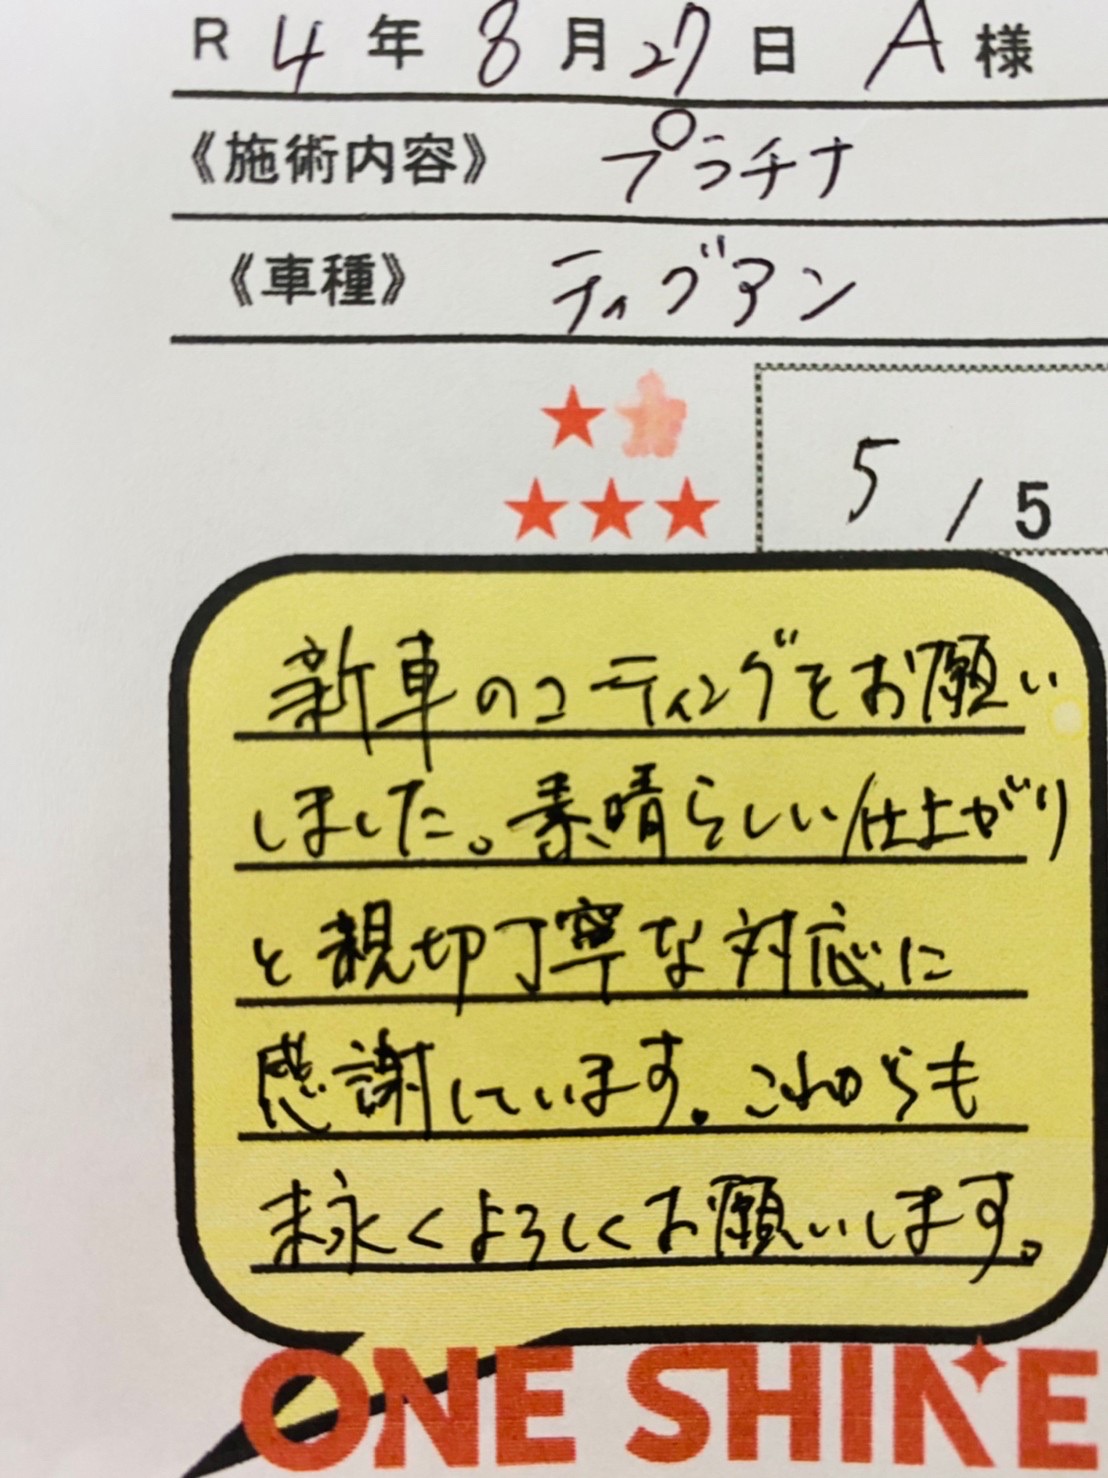 R 4 年 8 月 27 日 A 様
《施術内容》 プラチナ
《車種》 ティグアン
5 / 5
新車のコーティングをお願い
しました。素晴らしい仕上がり
と親切丁寧な対応に
感謝しています。これからも
末永くよろしくお願いします。
ONE SHINE